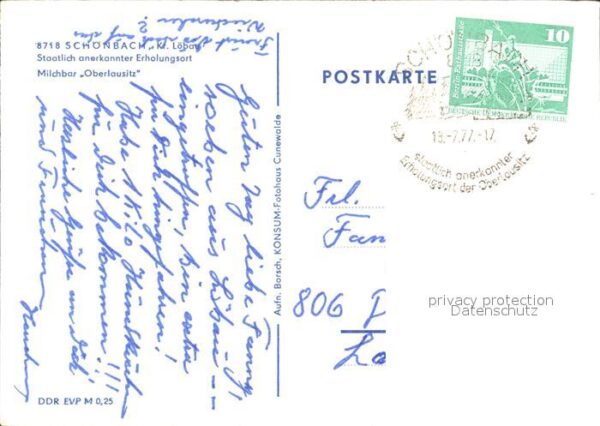 8718 SCHÖNBACH, Kr. Löbau
Staatlich anerkannter Erholungsort
Milchbar „Oberlausitz"
Guten Tag liebe Fanny,
soeben aus Löbau
eingetroffen, bin extra
für Dich hingefahren!
Habe 1 Kilo
für Dich bekommen!!!
Herzliche Grüße an Dich
und
DDR EVP M 0,25
Aufn. Borsch, KONSUM-Fotohaus Cunewalde
POSTKARTE
10
Berlin, Rathausstraße
DEUTSCHE DEMOKRATISCHE REPUBLIK
SCHÖNBACH
13.-7.77.-17
staatlich anerkannter
Erholungsort der Oberlausitz
Frl.
Fan
806
privacy protection
Datenschutz